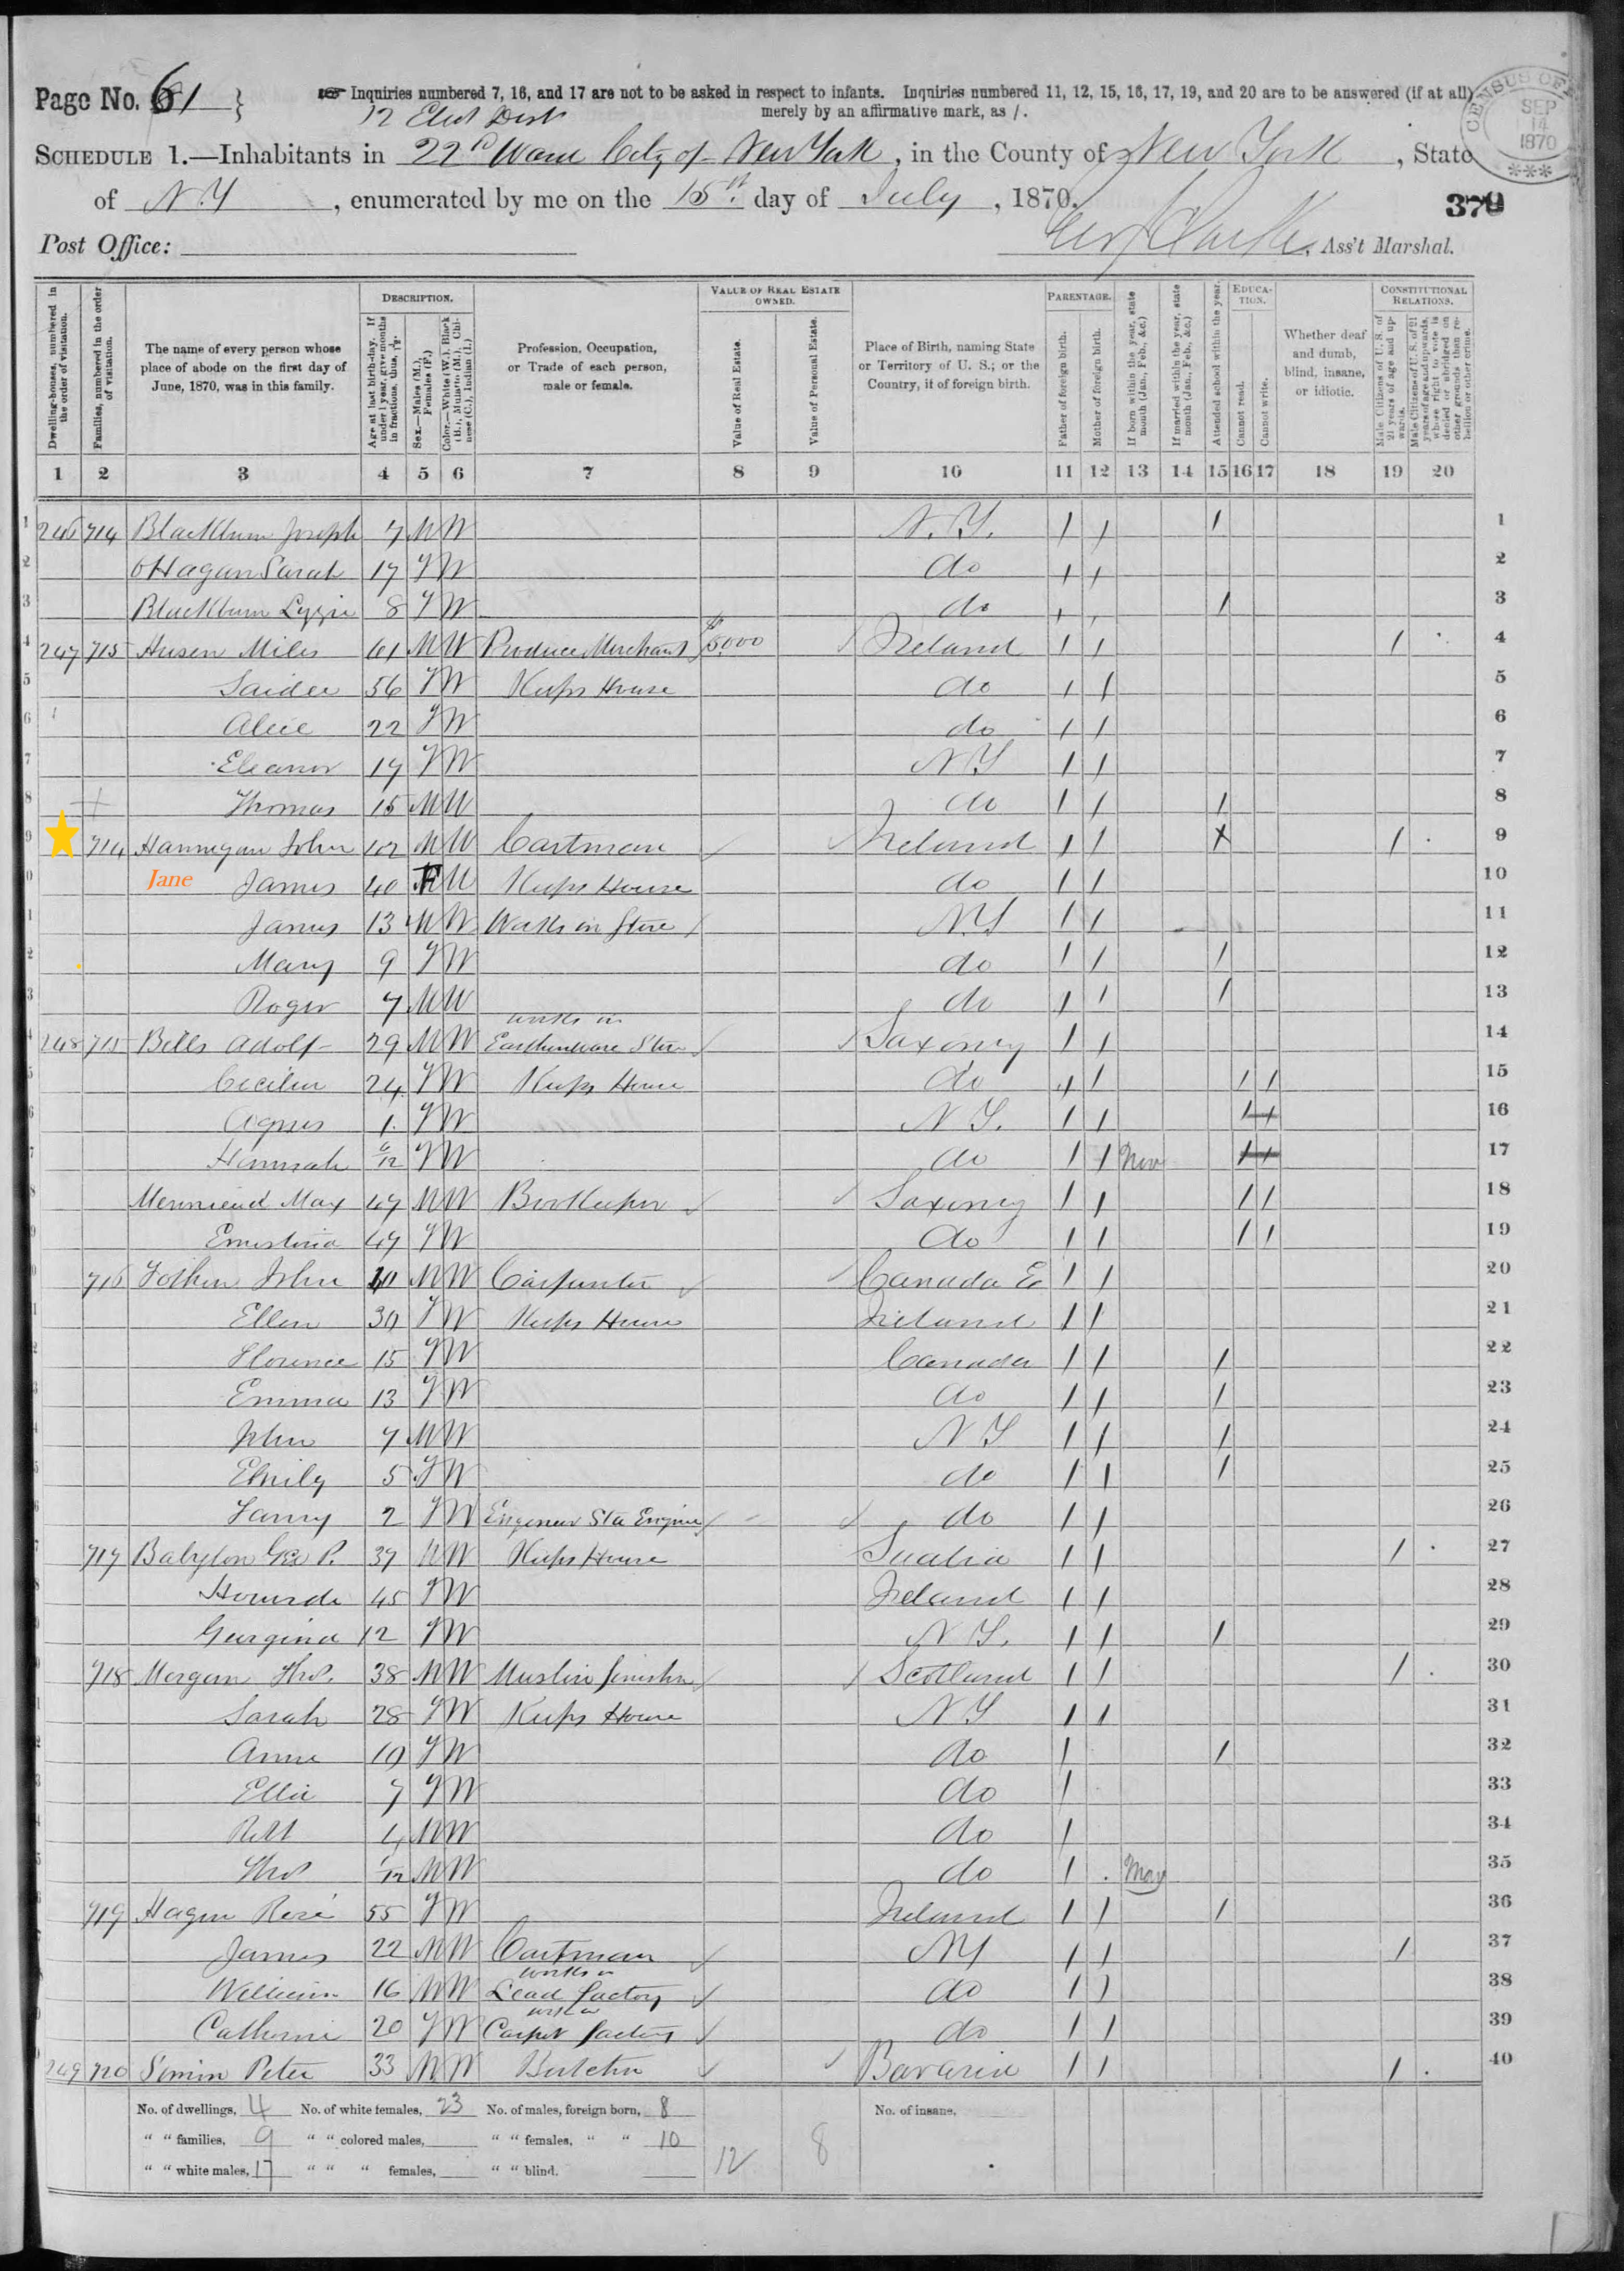 Page No. 61 }
☞ Inquiries numbered 7, 16, and 17 are not to be asked in respect to infants. Inquiries numbered 11, 12, 15, 16, 17, 19, and 20 are to be answered (if at all)
merely by an affirmative mark, as /.
CENSUS OF
SEP
14
1870
***
12 Elect Dist
SCHEDULE 1.—Inhabitants in 22nd Ward City of New York, in the County of New York, State
of N.Y, enumerated by me on the 15th day of July, 1870.
379
Post Office: Ass't Marshal.
Dwelling-houses, numbered in the order of visitation.
Families, numbered in the order of visitation.
The name of every person whose place of abode on the first day of June, 1870, was in this family.
DESCRIPTION.
Age at last birth-day. If under 1 year, give months in fractions, thus, 3/12.
Sex.—Males (M.), Females (F.)
Color.—White (W.), Black (B.), Mulatto (M.), Chinese (C.), Indian (I.)
Profession, Occupation, or Trade of each person, male or female.
VALUE OF REAL ESTATE OWNED.
Value of Real Estate.
Value of Personal Estate.
Place of Birth, naming State or Territory of U. S.; or the Country, if of foreign birth.
PARENTAGE.
Father of foreign birth.
Mother of foreign birth.
If born within the year, state month (Jan., Feb., &c.)
If married within the year, state month (Jan., Feb., &c.)
Attended school within the year.
EDUCATION.
Cannot read.
Cannot write.
Whether deaf and dumb, blind, insane, or idiotic.
CONSTITUTIONAL RELATIONS.
Male Citizens of U. S. of 21 years of age and upwards.
Male Citizens of U. S. of 21 years of age and upwards, whose right to vote is denied or abridged on other grounds than rebellion or other crime.
1 2 3 4 5 6 7 8 9 10 11 12 13 14 15 16 17 18 19 20
1 246 714 Blackburn Joseph 7 M W N.Y. / / / 1
2 OHagan Sarah 17 F W do / / 2
3 Blackburn Lizzie 8 F W do / / / 3
4 247 715 Husen Miles 61 M W Produce Merchant $5000 Ireland / / / 4
5 56 F W Keeps House do / / 5
6 Alice 22 F W do / / 6
7 Eleanor 17 F W N Y / / 7
8 Thomas 15 M W do / / / 8
9 714 Hannegan John 42 M W Cartman Ireland / / / 9
Jane
10 James 40 F W Keeps House do / / 10
11 James 13 M W Works in Store N.Y / / 11
12 Mary 9 F W do / / / 12
13 Roger 7 M W do / / / 13
works in
14 248 715 Bells Adolf 29 M W Earthenware Store Saxony / / 14
15 Cecilia 24 F W Keeps House do / / / / 15
16 Agnes 1 F W N Y. / / / / 16
17 Hannah 6/12 F W do / / Nov / / 17
18 Max 47 M W BooKeeper Saxony / / / / 18
19 Ernestina 47 F W do / / / / 19
20 716 John 40 M W Carpenter Canada E / / 20
21 Ellen 30 F W Keeps House Ireland / / 21
22 Florence 15 F W Canada / / / 22
23 Emma 13 F W do / / / 23
24 John 7 M W N Y / / / 24
25 Emily 5 F W do / / / 25
26 Fanny 2 F W Engeneer Sta Engine do / / 26
27 717 Babylon Geo P. 37 M W Keeps House / / / 27
28 45 F W Ireland / / 28
29 Georgina 12 F W N Y. / / / 29
30 718 Morgan Thos. 38 M W Muslin finisher Scotland / / / 30
31 Sarah 28 F W Keeps House N Y / / 31
32 Anna 10 F W do / / 32
33 Ella 7 F W do / 33
34 Robt 4 M W do / 34
35 Thos 1/12 M W do / May 35
36 719 Hagan Rose 55 F W Ireland / / / 36
37 James 22 M W Cartman N Y / / / 37
works in
38 William 16 M W Lead factory do / / 38
works in
39 Catherine 20 F W Carpet factory do / / 39
40 249 720 Simin Peter 33 M W Butcher Bavaria / / / 40
No. of dwellings, 4 No. of white females, 23 No. of males, foreign born, 8 No. of insane,
" " families, 9 " " colored males, " " females, " " 10
" " white males, 17 " " " females, " " blind. 12 8